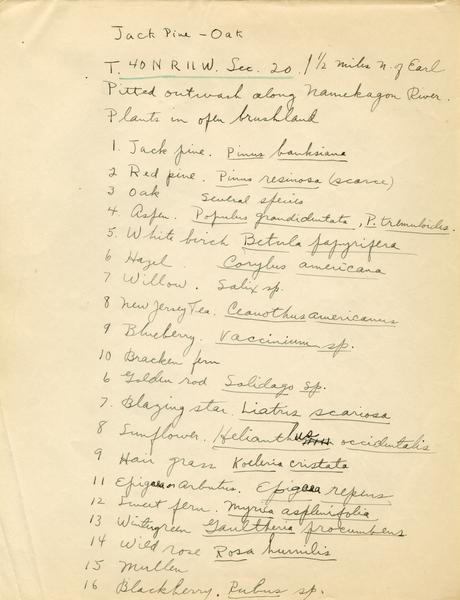 Jack Pine - Oak
T. 40 N R 11 W. Sec. 20. 1 1/2 miles N. of Earl
Pitted outwash along Namekagon River.
Plants in open brushland
1. Jack pine. Pinus banksiana
2 Red pine. Pinus resinosa (scarce)
3 Oak Several species
4. Aspen. Populus grandidentata, P. tremuloides.
5. White birch Betula papyrifera
6 Hazel. Corylus americana
7 Willow. Salix sp.
8 New Jersey Tea. Ceanothus americanus
9 Blueberry. Vaccinium sp.
10 Bracken fern
6 Golden rod Solidago sp.
7. Blazing star. Liatris scariosa
8 Sunflower. Helianthus occidentalis
9 Hair grass Koeleria cristata
11 Epigaea or Arbutus. Epigaea repens
12 Sweet fern. Myrica asplenifolia
13 Wintergreen Gaultheria procumbens
14 Wild rose Rosa humilis
15 Mullen
16 Blackberry. Rubus sp.